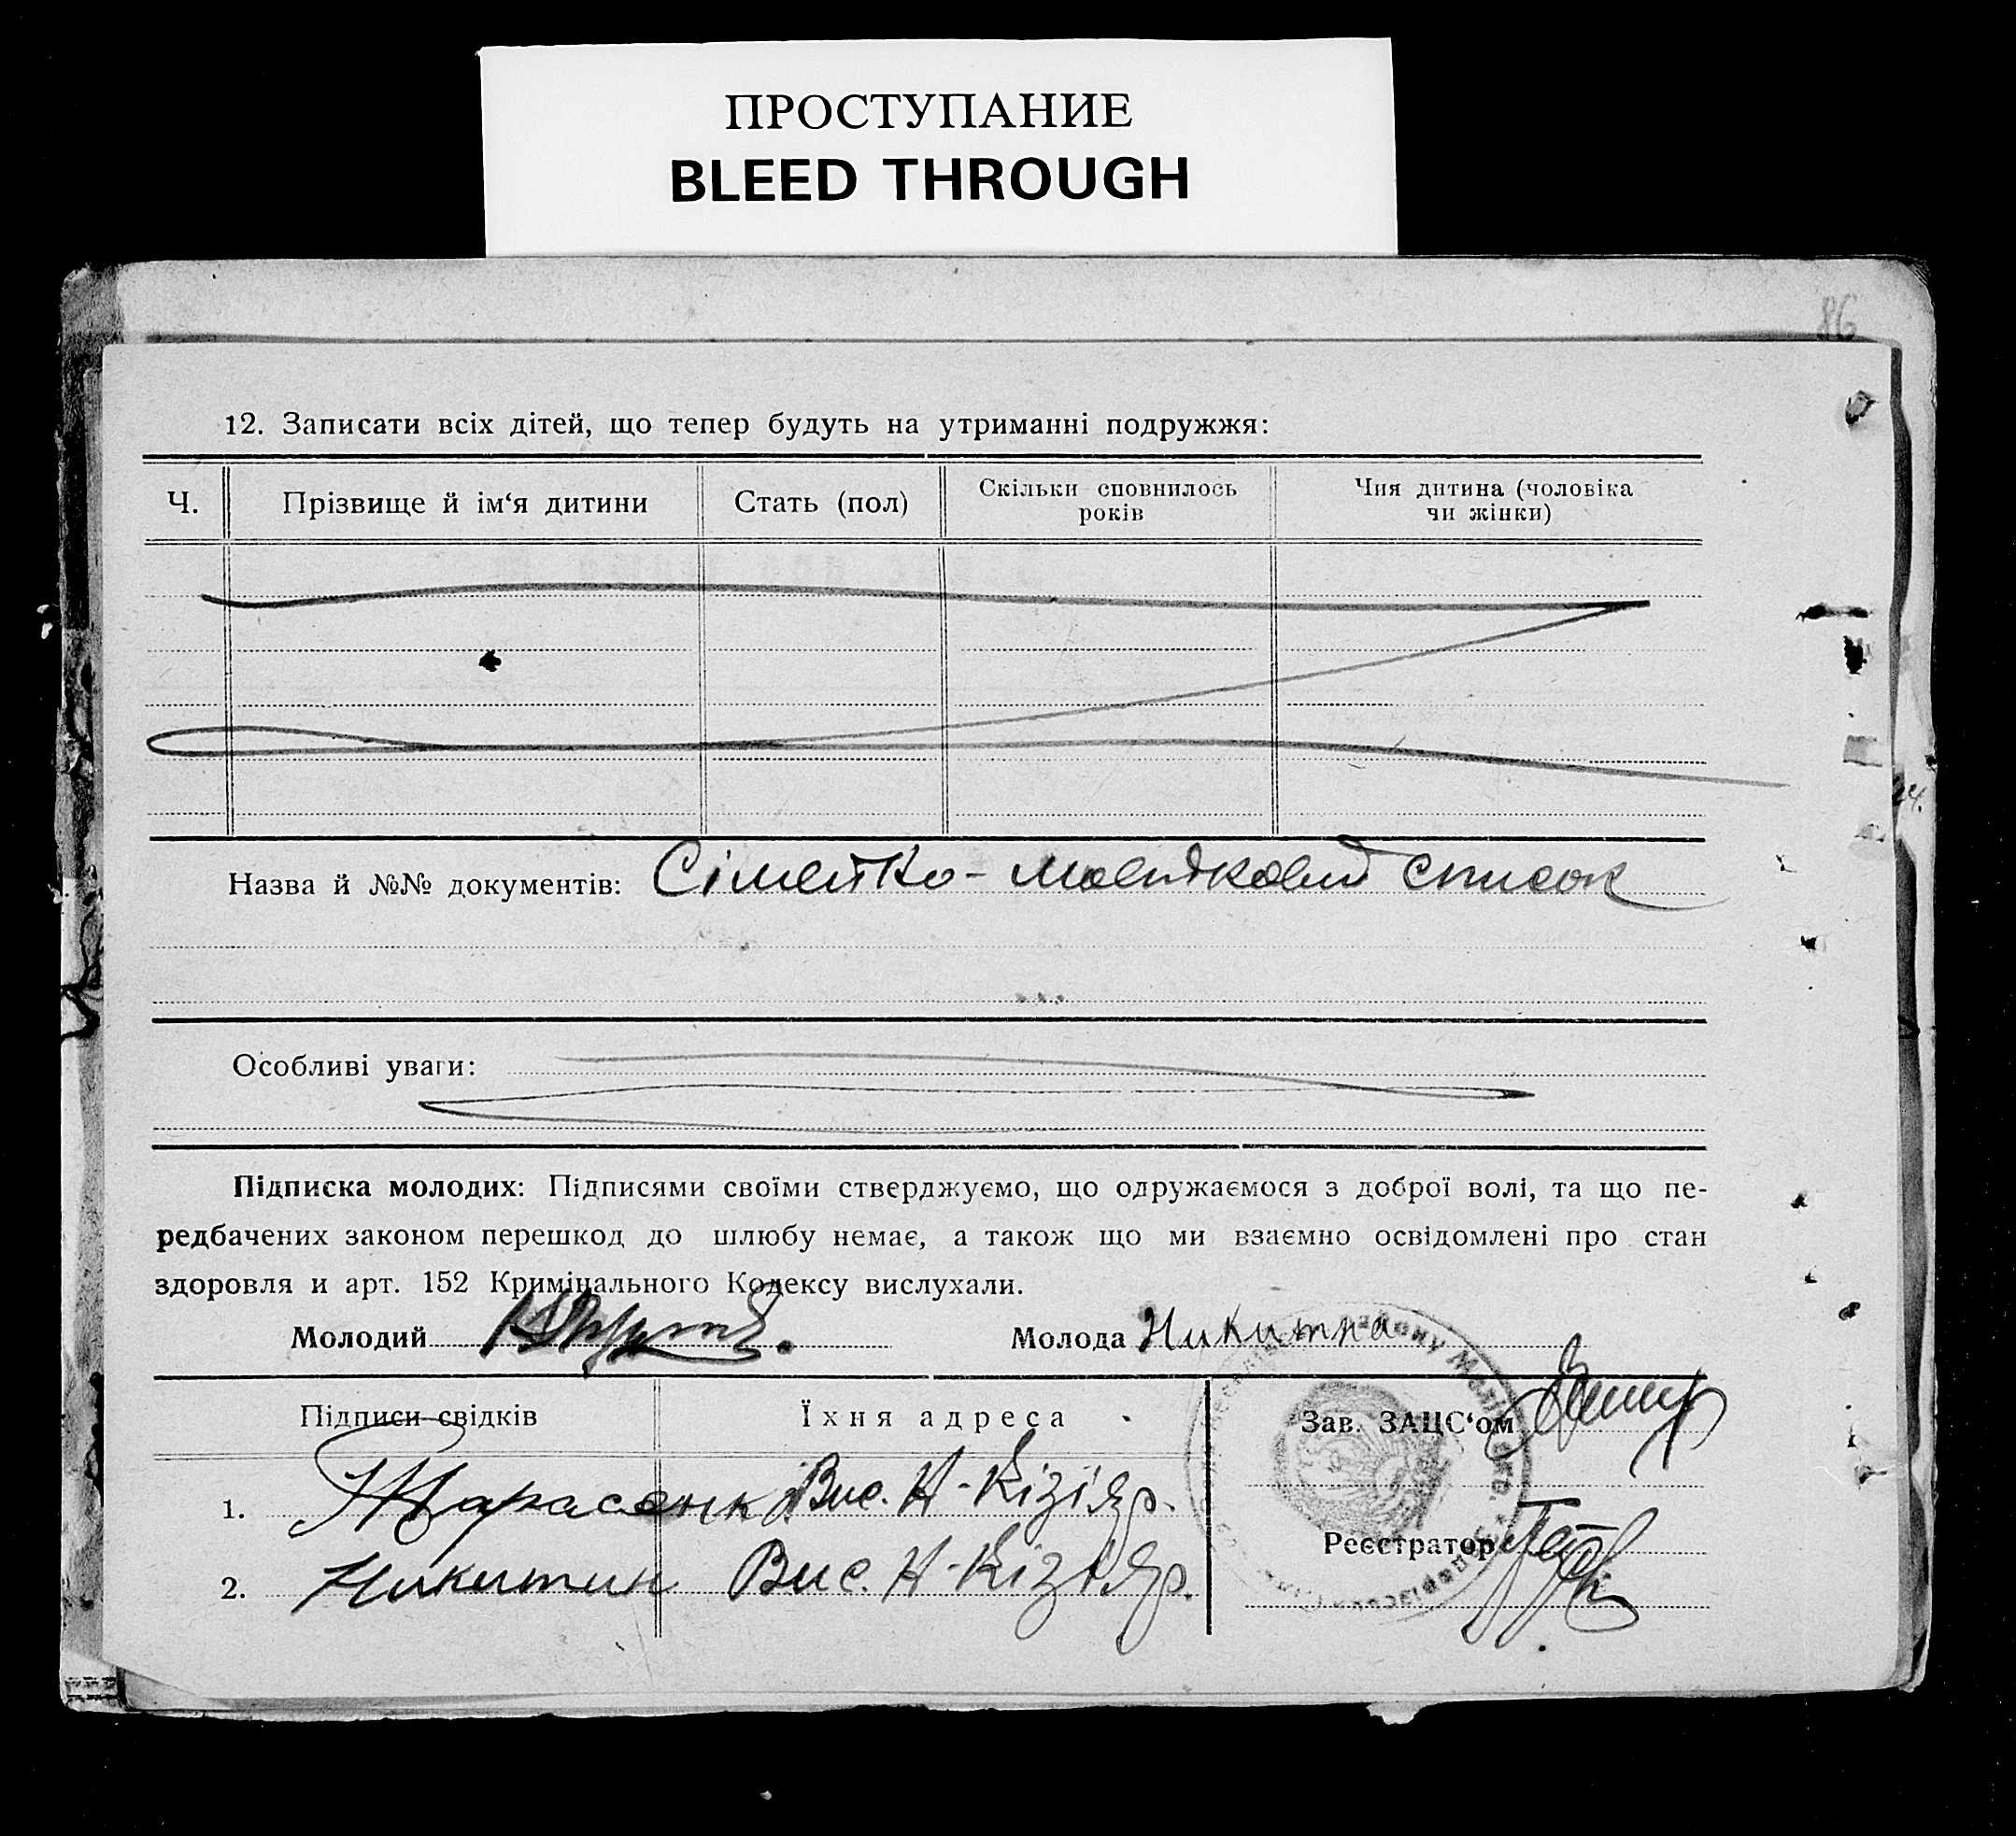 ПРОСТУПАНИЕ
BLEED THROUGH
86
12. Записати всіх дітей, що тепер будуть на утриманні подружжя:
Ч. Прізвище й ім‘я дитини Стать (пол) Скільки сповнилось років Чия дитина (чоловіка чи жінки)
Назва й №№ документів: Сімейно-маєтковий список
Особливі уваги:
Підписка молодих: Підписями своїми стверджуємо, що одружаємося з доброї волі, та що пе-
редбачених законом перешкод до шлюбу немає, а також що ми взаємно освідомлені про стан
здоровля и арт. 152 Кримінального Кодексу вислухали.
Молодий Молода Никитна
Підписи свідків Їхня адреса Зав. ЗАЦС‘ом
1. Тарасенко Вис. Н-Кізіяр.
Реєстратор
2. Никитин Вис. Н-Кізіяр.